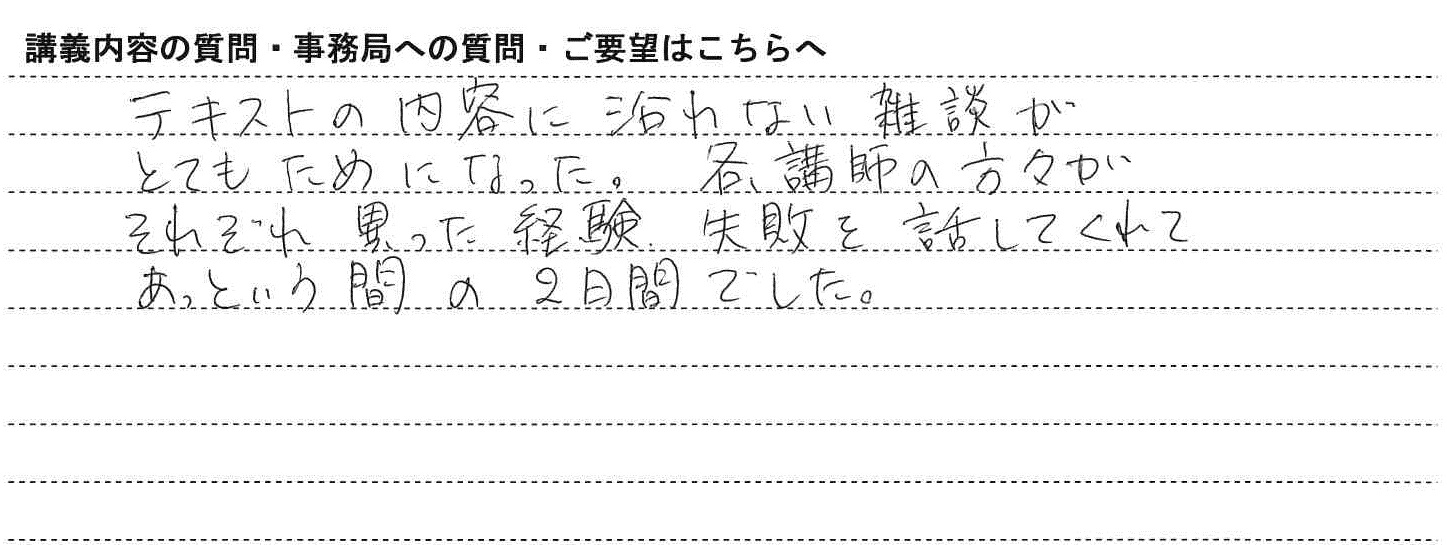 講義内容の質問・事務局への質問・ご要望はこちらへ
テキストの内容に沿れない雑談が
とてもためになった。各講師の方々が
それぞれ異った経験、失敗を話してくれて
あっという間の2日間でした。